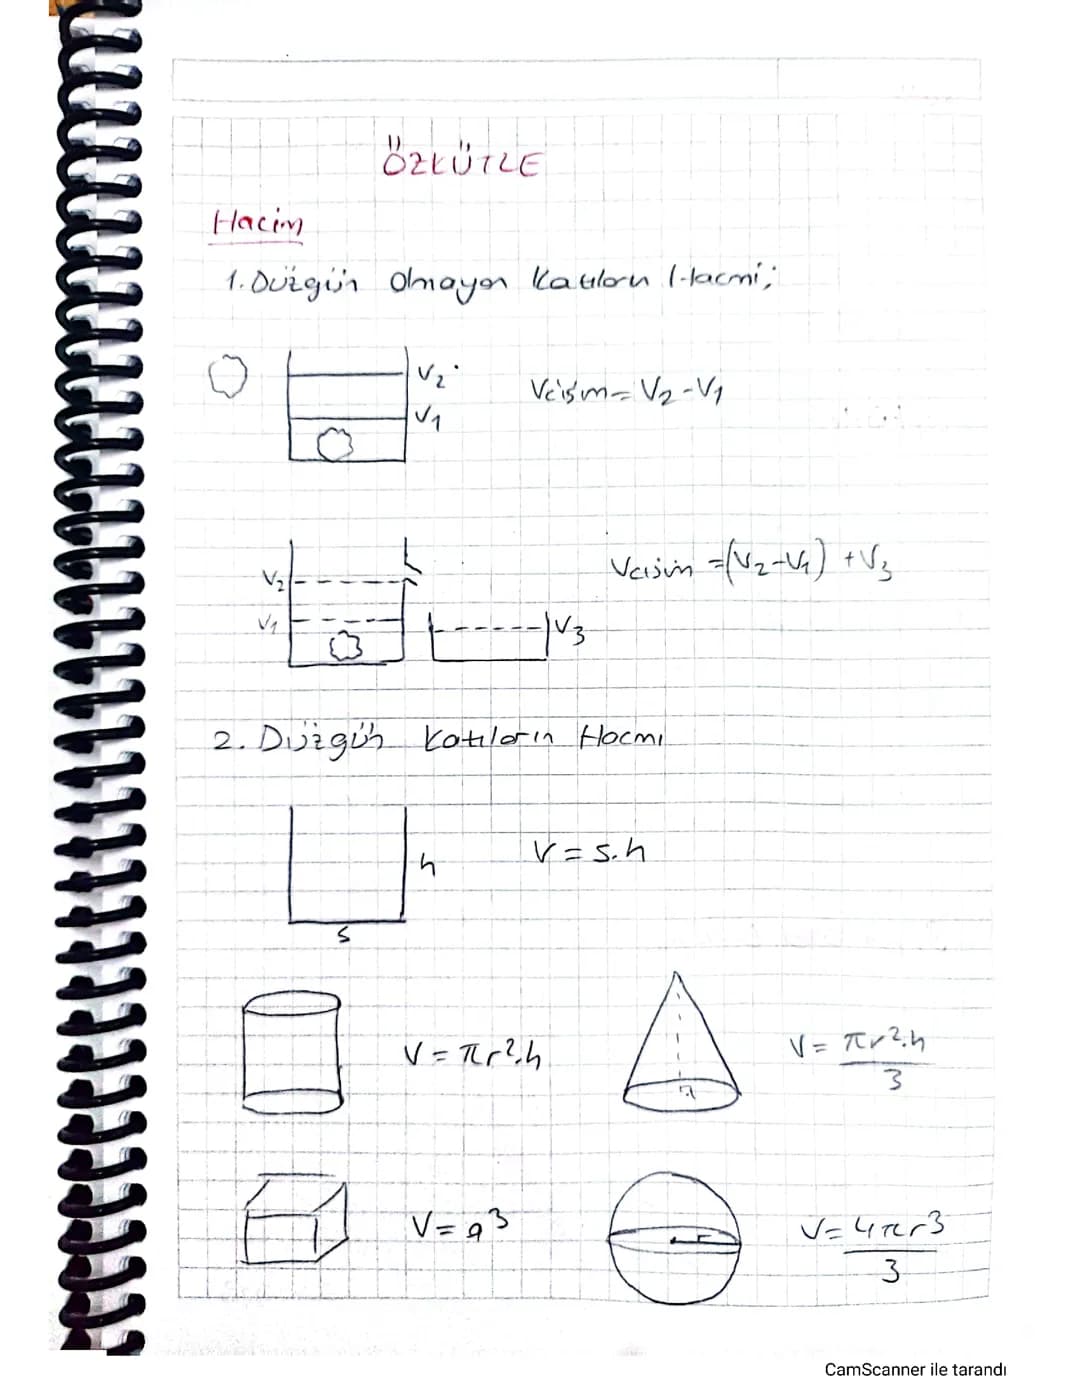 ÖZKÜTLE
Hacim
1. Düzgün Olmayan Katıların Hacmi;
V₂
V₁
Vcisim = V₂ - V₁
V₂
V₁
V₃
Vcisim = (V₂ - V₁) + V₃
2. Düzgün Katıların Hacmi
h
s
V = s.h
V = πr².h
V = πr².h / 3
V = a³
r
V = 4πr³ / 3
CamScanner ile tarandı